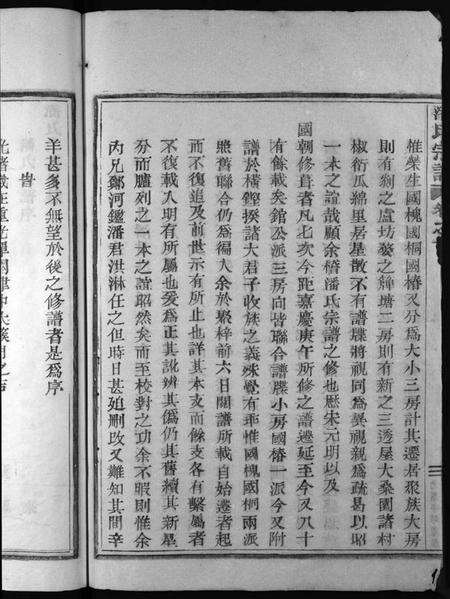 潘氏宗譜 卷之首
惟柴生國槐國桐國椿又分爲大小三房計其遷居聚族大房
則有剡之盧坊婺之䢴塘二房則有新之三透屋大桑園諸村
椒衍瓜綿里居星散不有譜牒將視同爲異視親爲疏曷以昭
一本之誼哉顧余稽潘氏宗譜之修也歷宋元明以及
國朝修葺者凡七次今距嘉慶庚午所修之譜遞延至今又八十
有餘載矣舘公派三房向皆聯合譜牒小房國椿一派今又附
譜於橫鏗揆諸大君子收族之義殊覺有乖惟國槐國桐兩派
照舊聯合仍爲得人余於聚梓前六日閱譜所載自始遷者起
而不復追及前世示有所止也詳其本支而餘支各有繫屬者
不復載入明有所屬也爰爲正其訛辨其僞仍其舊續其新畢
分而臚列之一本之誼昭然矣而至校對之功余不暇則惟余
內兄鄭河鑑潘君洪淋任之但時日甚迫刪改又難知其間辛
羊甚多不無望於後之修譜者是爲序
旹